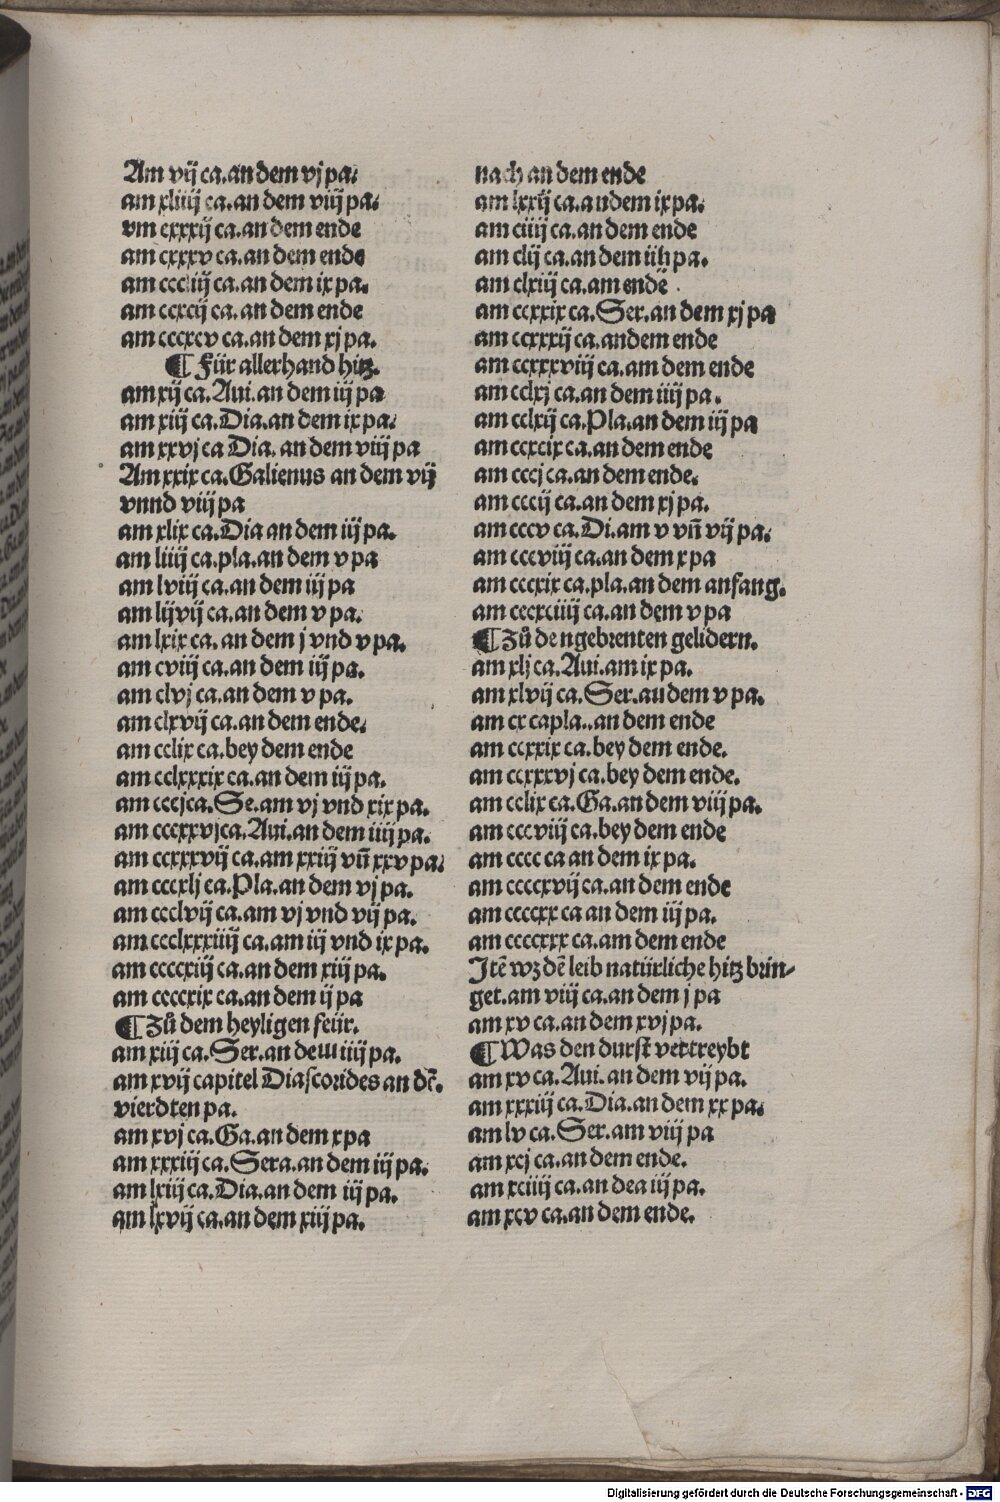 Am vij ca.an dem vj pa.
am xliiij ca.an dem viij pa.
vm cxxxij ca.an dem ende
am cxxxv ca.an dem ende
am cccliij ca.an dem ix pa.
am ccxcij ca.an dem ende
am cccxcv ca.an dem xj pa.
¶ Für allerhand hitz.
am xij ca.Aui.an dem iij pa
am xiij ca.Dia.an dem ix pa.
am xxvj ca Dia. an dem viij pa
Am xxix ca.Galienus an dem vij
vnnd viij pa
am xlix ca.Dia an dem iij pa.
am liiij ca.pla.an dem v pa
am lviij ca.an dem iij pa
am lijvij ca.an dem v pa.
am lxix ca. an dem j vnd v pa.
am cviij ca.an dem iij pa.
am clvj ca.an dem v pa.
am clxvij ca.an dem ende.
am cclix ca.bey dem ende
am cclxxxix ca.an dem iij pa.
am cccj ca.Se.am vj vnd xix pa.
am cccxxvj ca.Aui.an dem iiij pa.
am ccxxxvij ca.am xxiij vñ xxv pa.
am cccxlj ca.Pla.an dem vj pa.
am ccclvij ca.am vj vnd vij pa.
am ccclxxxiiij ca.am iij vnd ix pa.
am ccccxiij ca.an dem xiij pa.
am ccccxix ca.an dem ij pa
¶ Zů dem heyligen feür.
am xiij ca.Ser.an dem iiij pa.
am xvij capitel Diascorides an dē.
vierdten pa.
am xvj ca.Ga.an dem x pa
am xxxiij ca.Sera.an dem iij pa.
am lxiij ca.Dia.an dem iij pa.
am lxvij ca.an dem xiij pa.
nach an dem ende
am lxxij ca.a ndem ix pa.
am ciiij ca.an dem ende
am clij ca.an dem iiij pa.
am clxiij ca.am endē.
am ccxxix ca.Ser.an dem xj pa
am ccxxxij ca.andem ende
am ccxxxviij ca.am dem ende
am cclxj ca.an dem iiij pa.
am cclxij ca.Pla.an dem iij pa
am ccxcix ca.an dem ende
am cccj ca.an dem ende.
am cccij ca.an dem xj pa.
am cccv ca.Di.am v vñ vij pa.
am cccviij ca.an dem x pa
am cccxix ca.pla.an dem anfang.
am cccxciiij ca.an dem v pa
¶ Zů de ngebrenten gelidern.
am xlj ca.Aui.am ix pa.
am xlvij ca.Ser.au dem v pa.
am cx capla..an dem ende
am ccxxix ca.bey dem ende.
am ccxxxvj ca.bey dem ende.
am cclix ca.Ga.an dem viij pa.
am cccviij ca.bey dem ende
am cccc ca an dem ix pa.
am ccccxvij ca.an dem ende
am ccccxx ca an dem iij pa.
am ccccxxx ca.am dem ende
Itē wz dē leib natürliche hitz brin-
get.am viij ca.an dem j pa
am xv ca.an dem xvj pa.
¶ Was den durst vertreybt
am xv ca.Aui.an dem vij pa.
am xxxiij ca.Dia.an dem xx pa.
am lv ca.Ser.am viij pa
am xcj ca.an dem ende.
am xciiij ca.an dea iij pa.
am xcv ca.an dem ende.
Digitalisierung gefördert durch die Deutsche Forschungsgemeinschaft - DFG